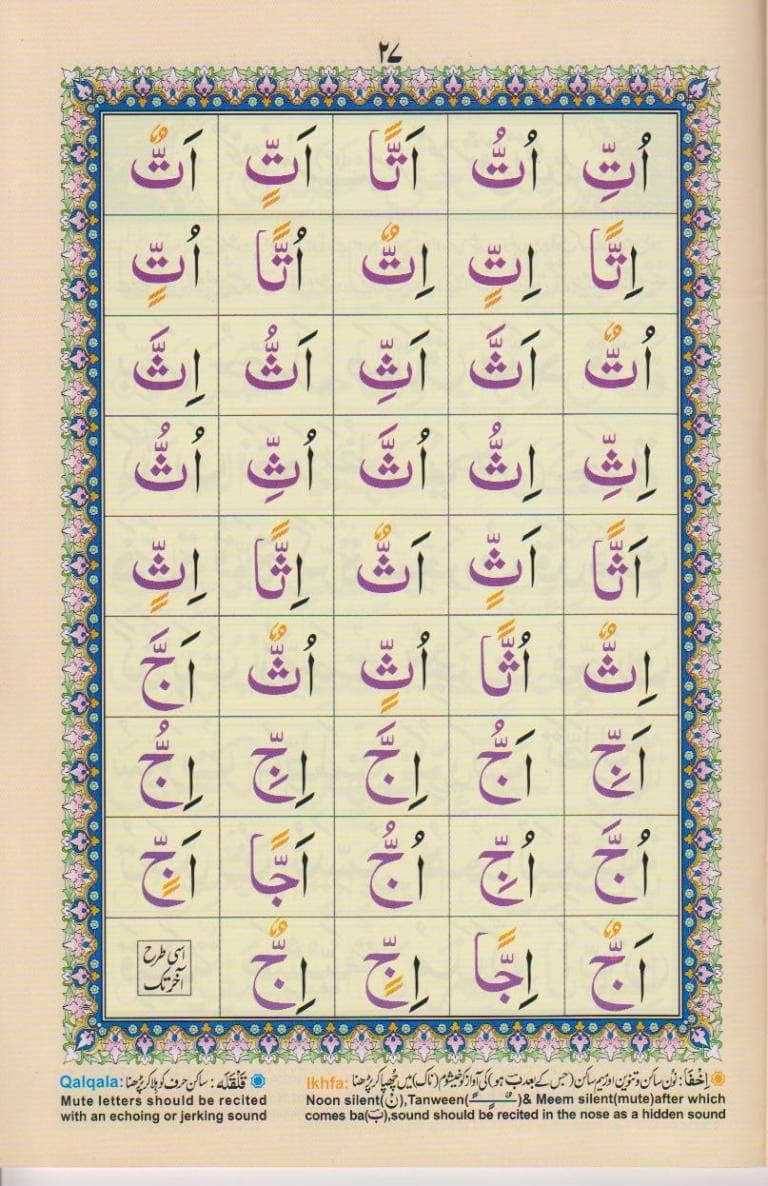 ٢٧
اُتِّ اُتُّ اَتًّا اَتٍّ اَتٌّ
اِتًّا اِتٍّ اِتٌّ اُتًّا اُتٍّ
اُتٌّ اَثَّ اَثِّ اَثُّ اِثَّ
اِثِّ اِثُّ اُثَّ اُثِّ اُثُّ
اَثًّا اَثٍّ اَثٌّ اِثًّا اِثٍّ
اِثٌّ اُثًّا اُثٍّ اُثٌّ اَجَّ
اَجِّ اَجُّ اِجَّ اِجِّ اِجُّ
اُجَّ اُجِّ اُجُّ اَجًّا اَجٍّ
اَجٌّ اِجًّا اِجٍّ اِجٌّ اسی طرح
آخر تک
اِخْفَا: نون ساکن و تنوین اور میم ساکن (جس کے بعد بَ ہو) کی آواز کو خیشوم (ناک) میں چھپا کر پڑھنا Ikhfa:
Noon silent(نْ),Tanween(ـًـٍـٌ)& Meem silent(mute)after which
comes ba(بَ),sound should be recited in the nose as a hidden sound
قَلْقَلَه: ساکن حرف کو ہلا کر پڑھنا Qalqala:
Mute letters should be recited
with an echoing or jerking sound